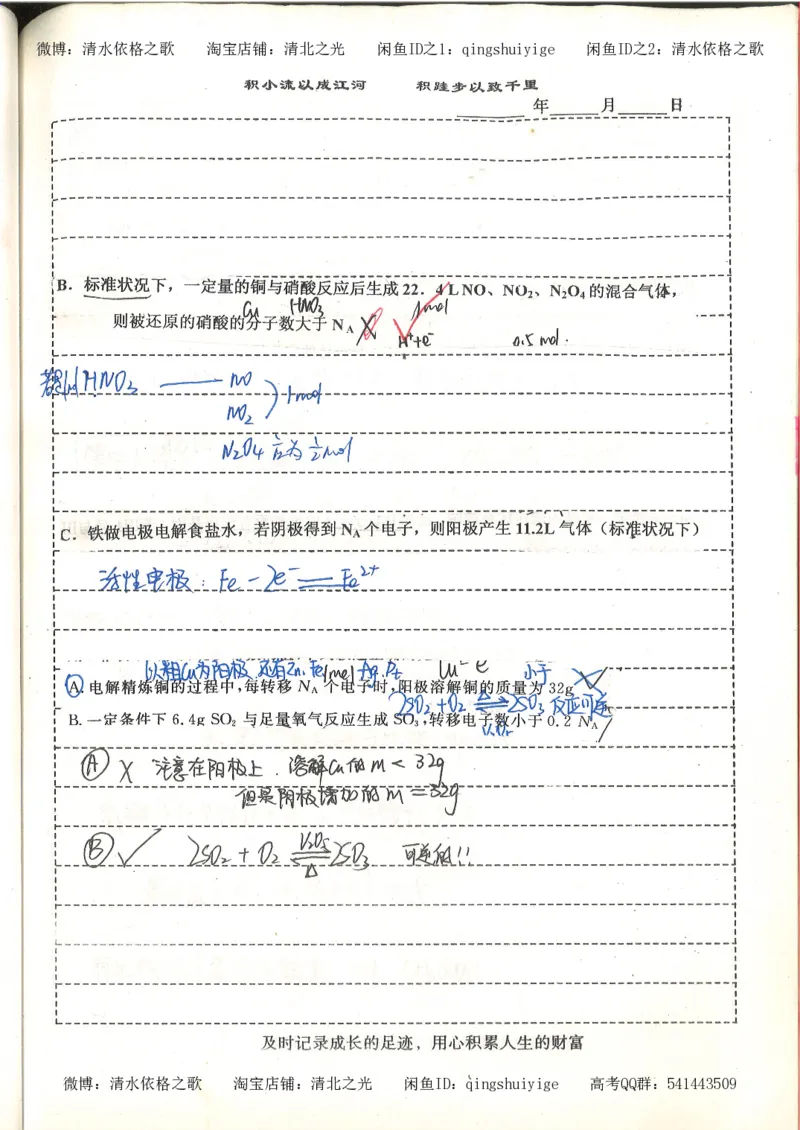 微博：清水依格之歌 淘宝店铺：清北之光 闲鱼ID之1：qingshuiyige 闲鱼ID之2：清水依格之歌
积小流以成江河 积跬步以致千里
年 月 日
B．标准状况下，一定量的铜与硝酸反应后生成 22．4 L NO、NO₂、N₂O₄ 的混合气体，
Cu HNO₃ 1mol
则被还原的硝酸的分子数大于 N_A
H⁺+e⁻ 0.5 mol.
HNO₃ —— NO
NO₂ 1mol
N₂O₄ 应为 ½mol
C．铁做电极电解食盐水，若阴极得到 N_A 个电子，则阳极产生 11.2L 气体（标准状况下）
活性电极：Fe - 2e⁻ == Fe²⁺
以粗Cu为阳极 还有Zn. Fe 1mol Ag. Pt 小于
A. 电解精炼铜的过程中，每转移 N_A 个电子时，阳极溶解铜的质量为 32g
2SO₂ + O₂ ⇌ 2SO₃ 反应可逆
B. 一定条件下 6.4g SO₂ 与足量氧气反应生成 SO₃，转移电子数小于 0.2 N_A
Ⓐ X 注意在阳极上．溶解Cu的 m < 32g
但是阴极增加的 m = 32g
Ⓑ ✓ 2SO₂ + O₂ ⇌ 2SO₃ V₂O₅ △ 可逆的!!
及时记录成长的足迹，用心积累人生的财富
微博：清水依格之歌 淘宝店铺：清北之光 闲鱼ID：qingshuiyige 高考QQ群：541443509